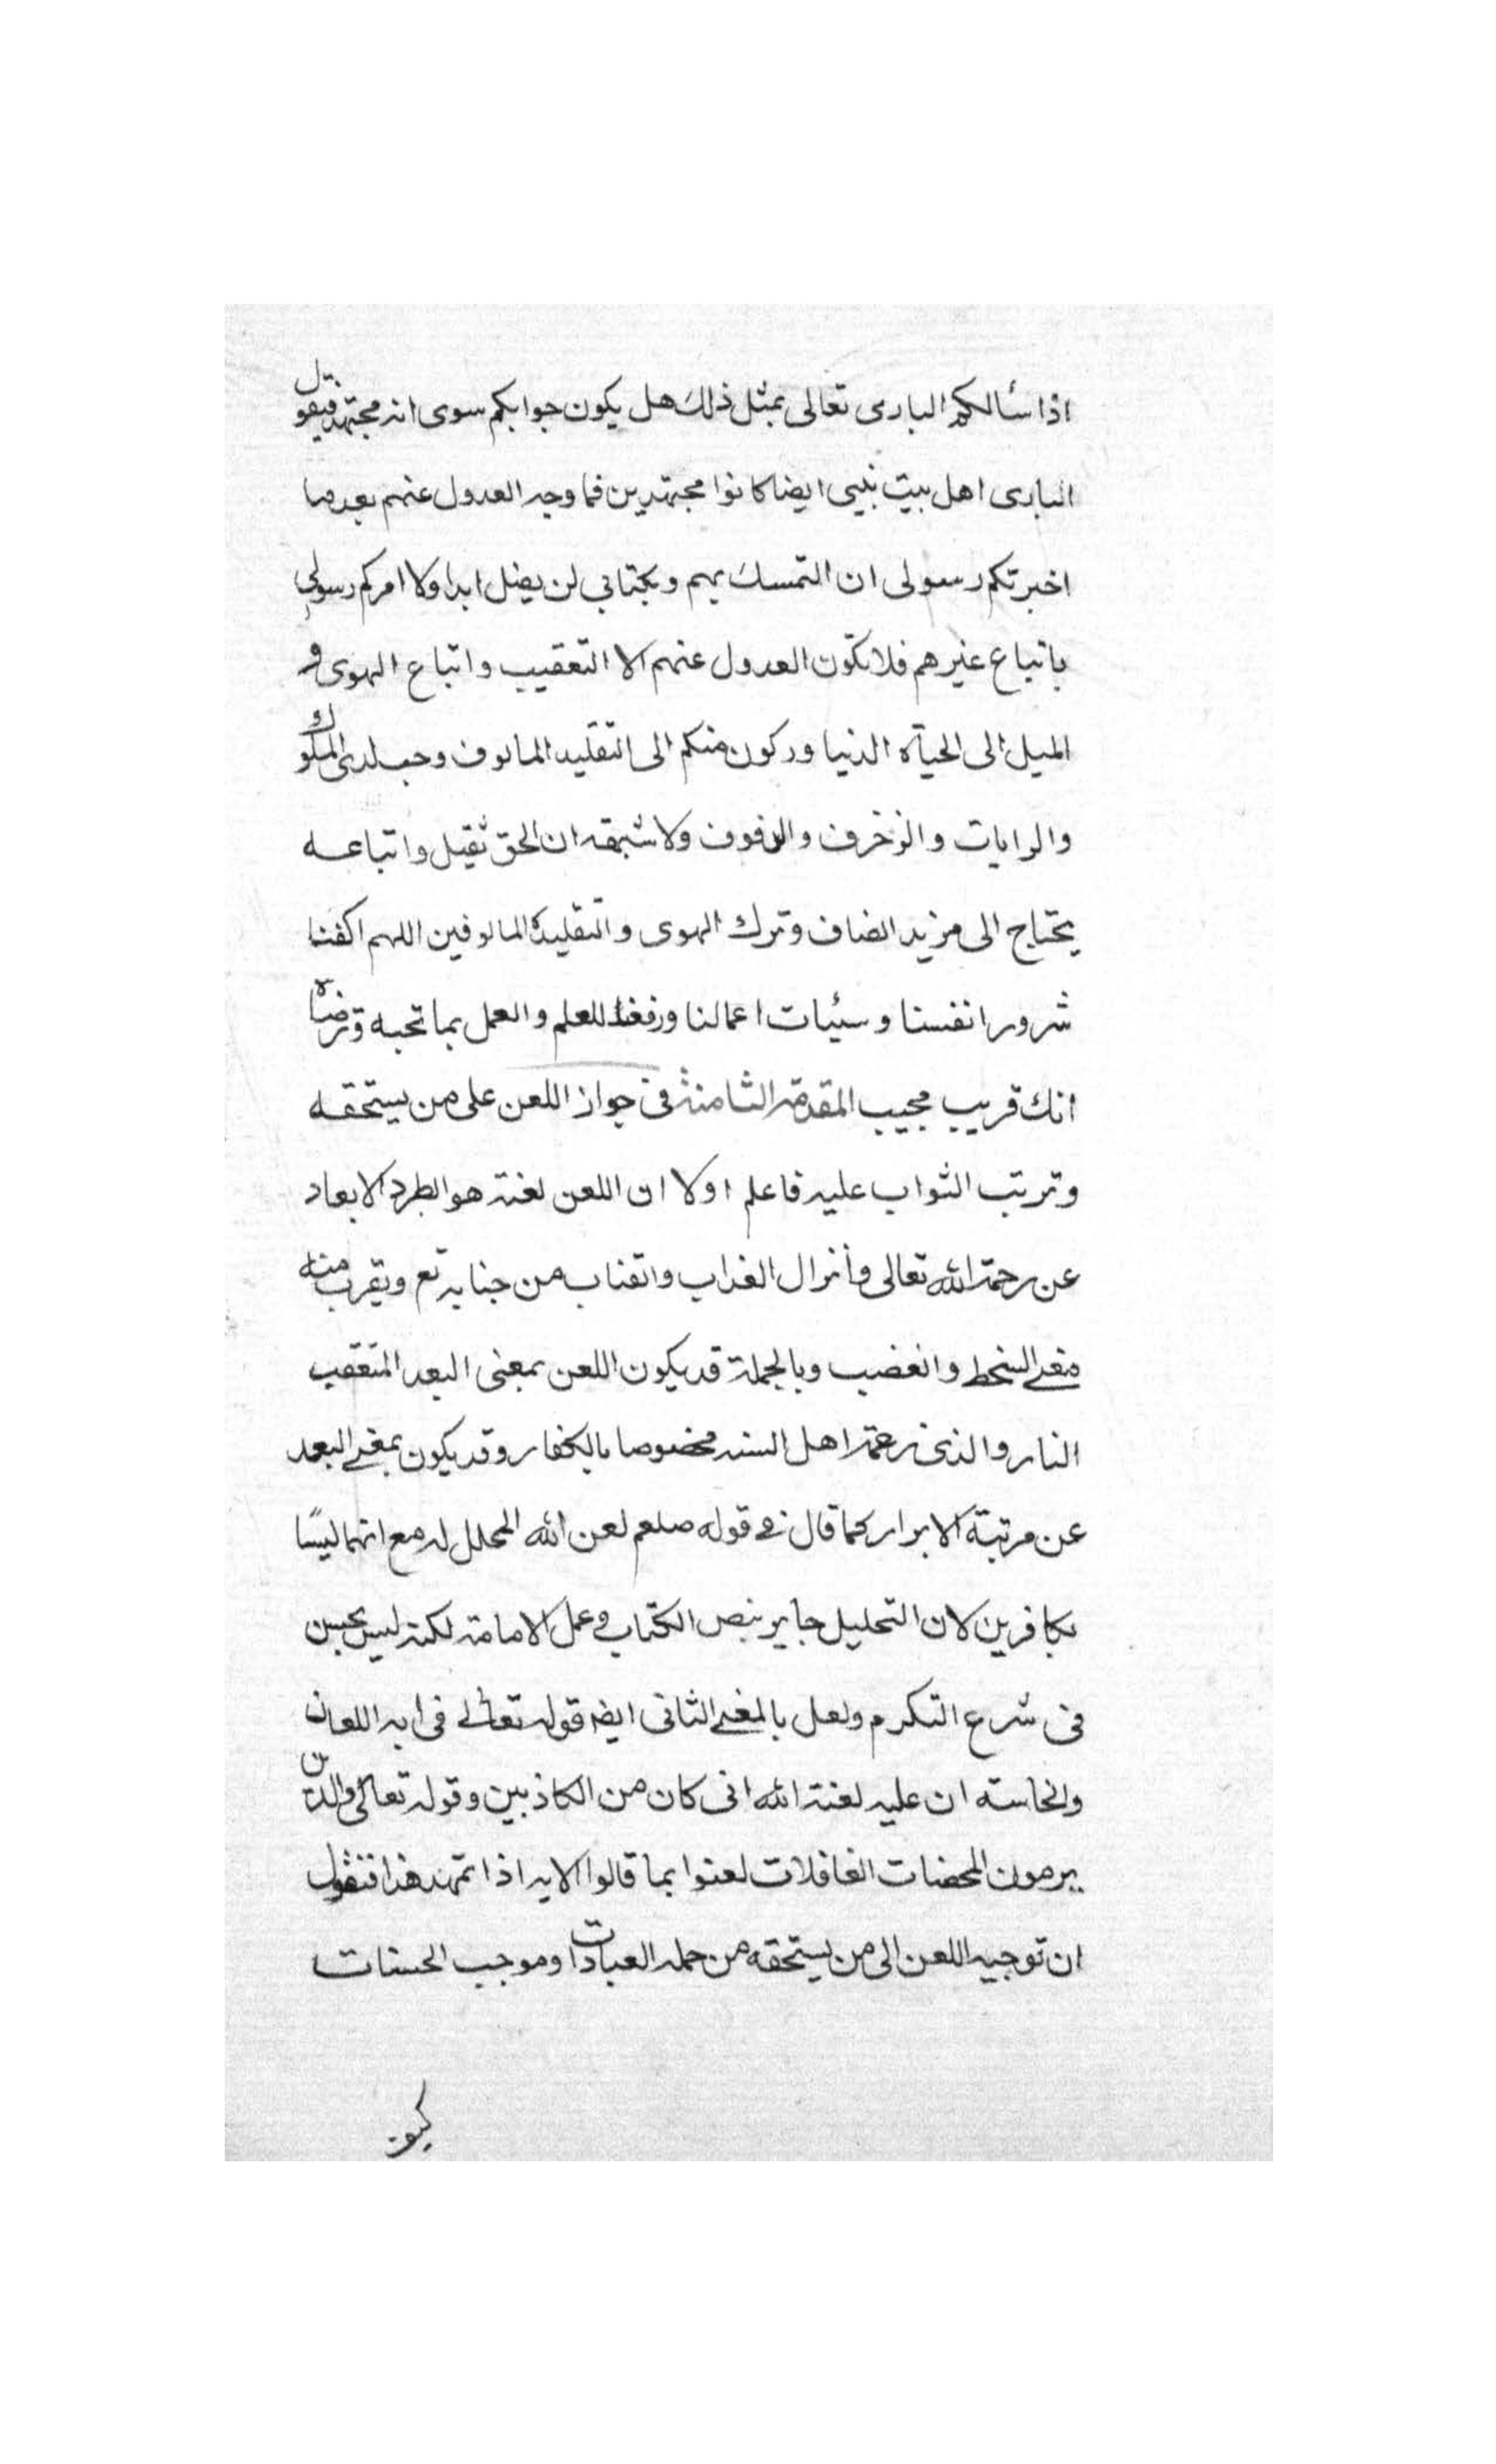 اذا سألكم البارى تعالى بمثل ذلك هل يكون جوابكم سوى انه مجتهد فيقول
البارى اهل بيت نبيى ايضا كانوا مجتهدين فما وجه العدول عنهم بعد ما
اخبرتكم رسولى ان التمسك بهم وبكتابي لن يضل ابدا ولا امركم رسولي
باتباع غيرهم فلا تكون العدول عنهم الا التعقيب واتباع الهوى و
الميل الى الحياة الدنيا وركون منكم الى التقليد المالوف وحب لدى الملوك
والرايات والزخرف ولا شبهة ان الحق ثقيل واتباعه
يحتاج الى مزيد انصاف وترك الهوى والتقليد المالوفين اللهم اكفنا
شرور انفسنا وسيئات اعمالنا وفقنا للعلم والعمل بما تحبه وترضاه
انك قريب مجيب المقدمة الثامنة فى جواز اللعن على من يستحقه
وترتب الثواب عليه فاعلم اولا ان اللعن لغة هو الطرد الابعاد
عن رحمة الله تعالى وأنزال العذاب من جنابه تع ويقرب منه
معنى السخط والغضب وبالجملة قد يكون اللعن بمعنى البعد المتعقب
النار والذى زعمة اهل السنه مخصوصا بالكفار وقد يكون بمعنى البعد
عن مرتبة الابرار كما قال فى قوله صلعم لعن الله المحلل له مع انهما ليسا
بكافرين لان التحليل جايز بنص الكتاب وعمل الامامة لكنه ليس بحسن
فى شرع التكرم ولعل بالمعنى الثانى ايضا قوله تعالى فى ايه اللعان
والخامسه ان عليه لعنة الله انى كان من الكاذبين وقوله تعالى والذين
يرمون المحصنات الغافلات لعنوا بما قالوا الايه اذا تمهد هذا فنقول
ان توجيه اللعن الى من يستحقه من جمله العبادات وموجب الحسنات